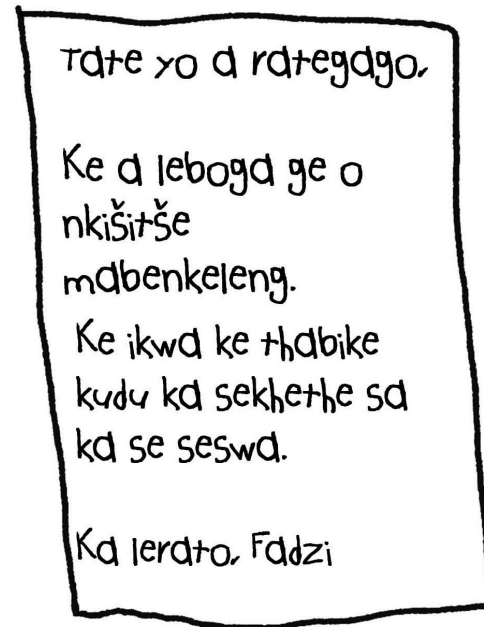 Tate yo a rategago,
Ke a leboga ge o
nkišitše
mabenkeleng.
Ke ikwa ke thabike
kudu ka sekhethe sa
ka se seswa.
Ka lerato, Fadzi